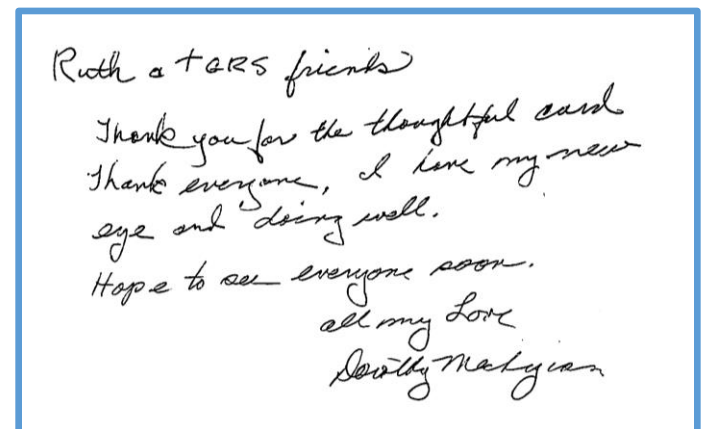 Ruth a + GRS friends
Thank you for the thoughtful card
Thank everyone, I have my new
eye and doing well.
Hope to see everyone soon.
all my Love
Dorothy